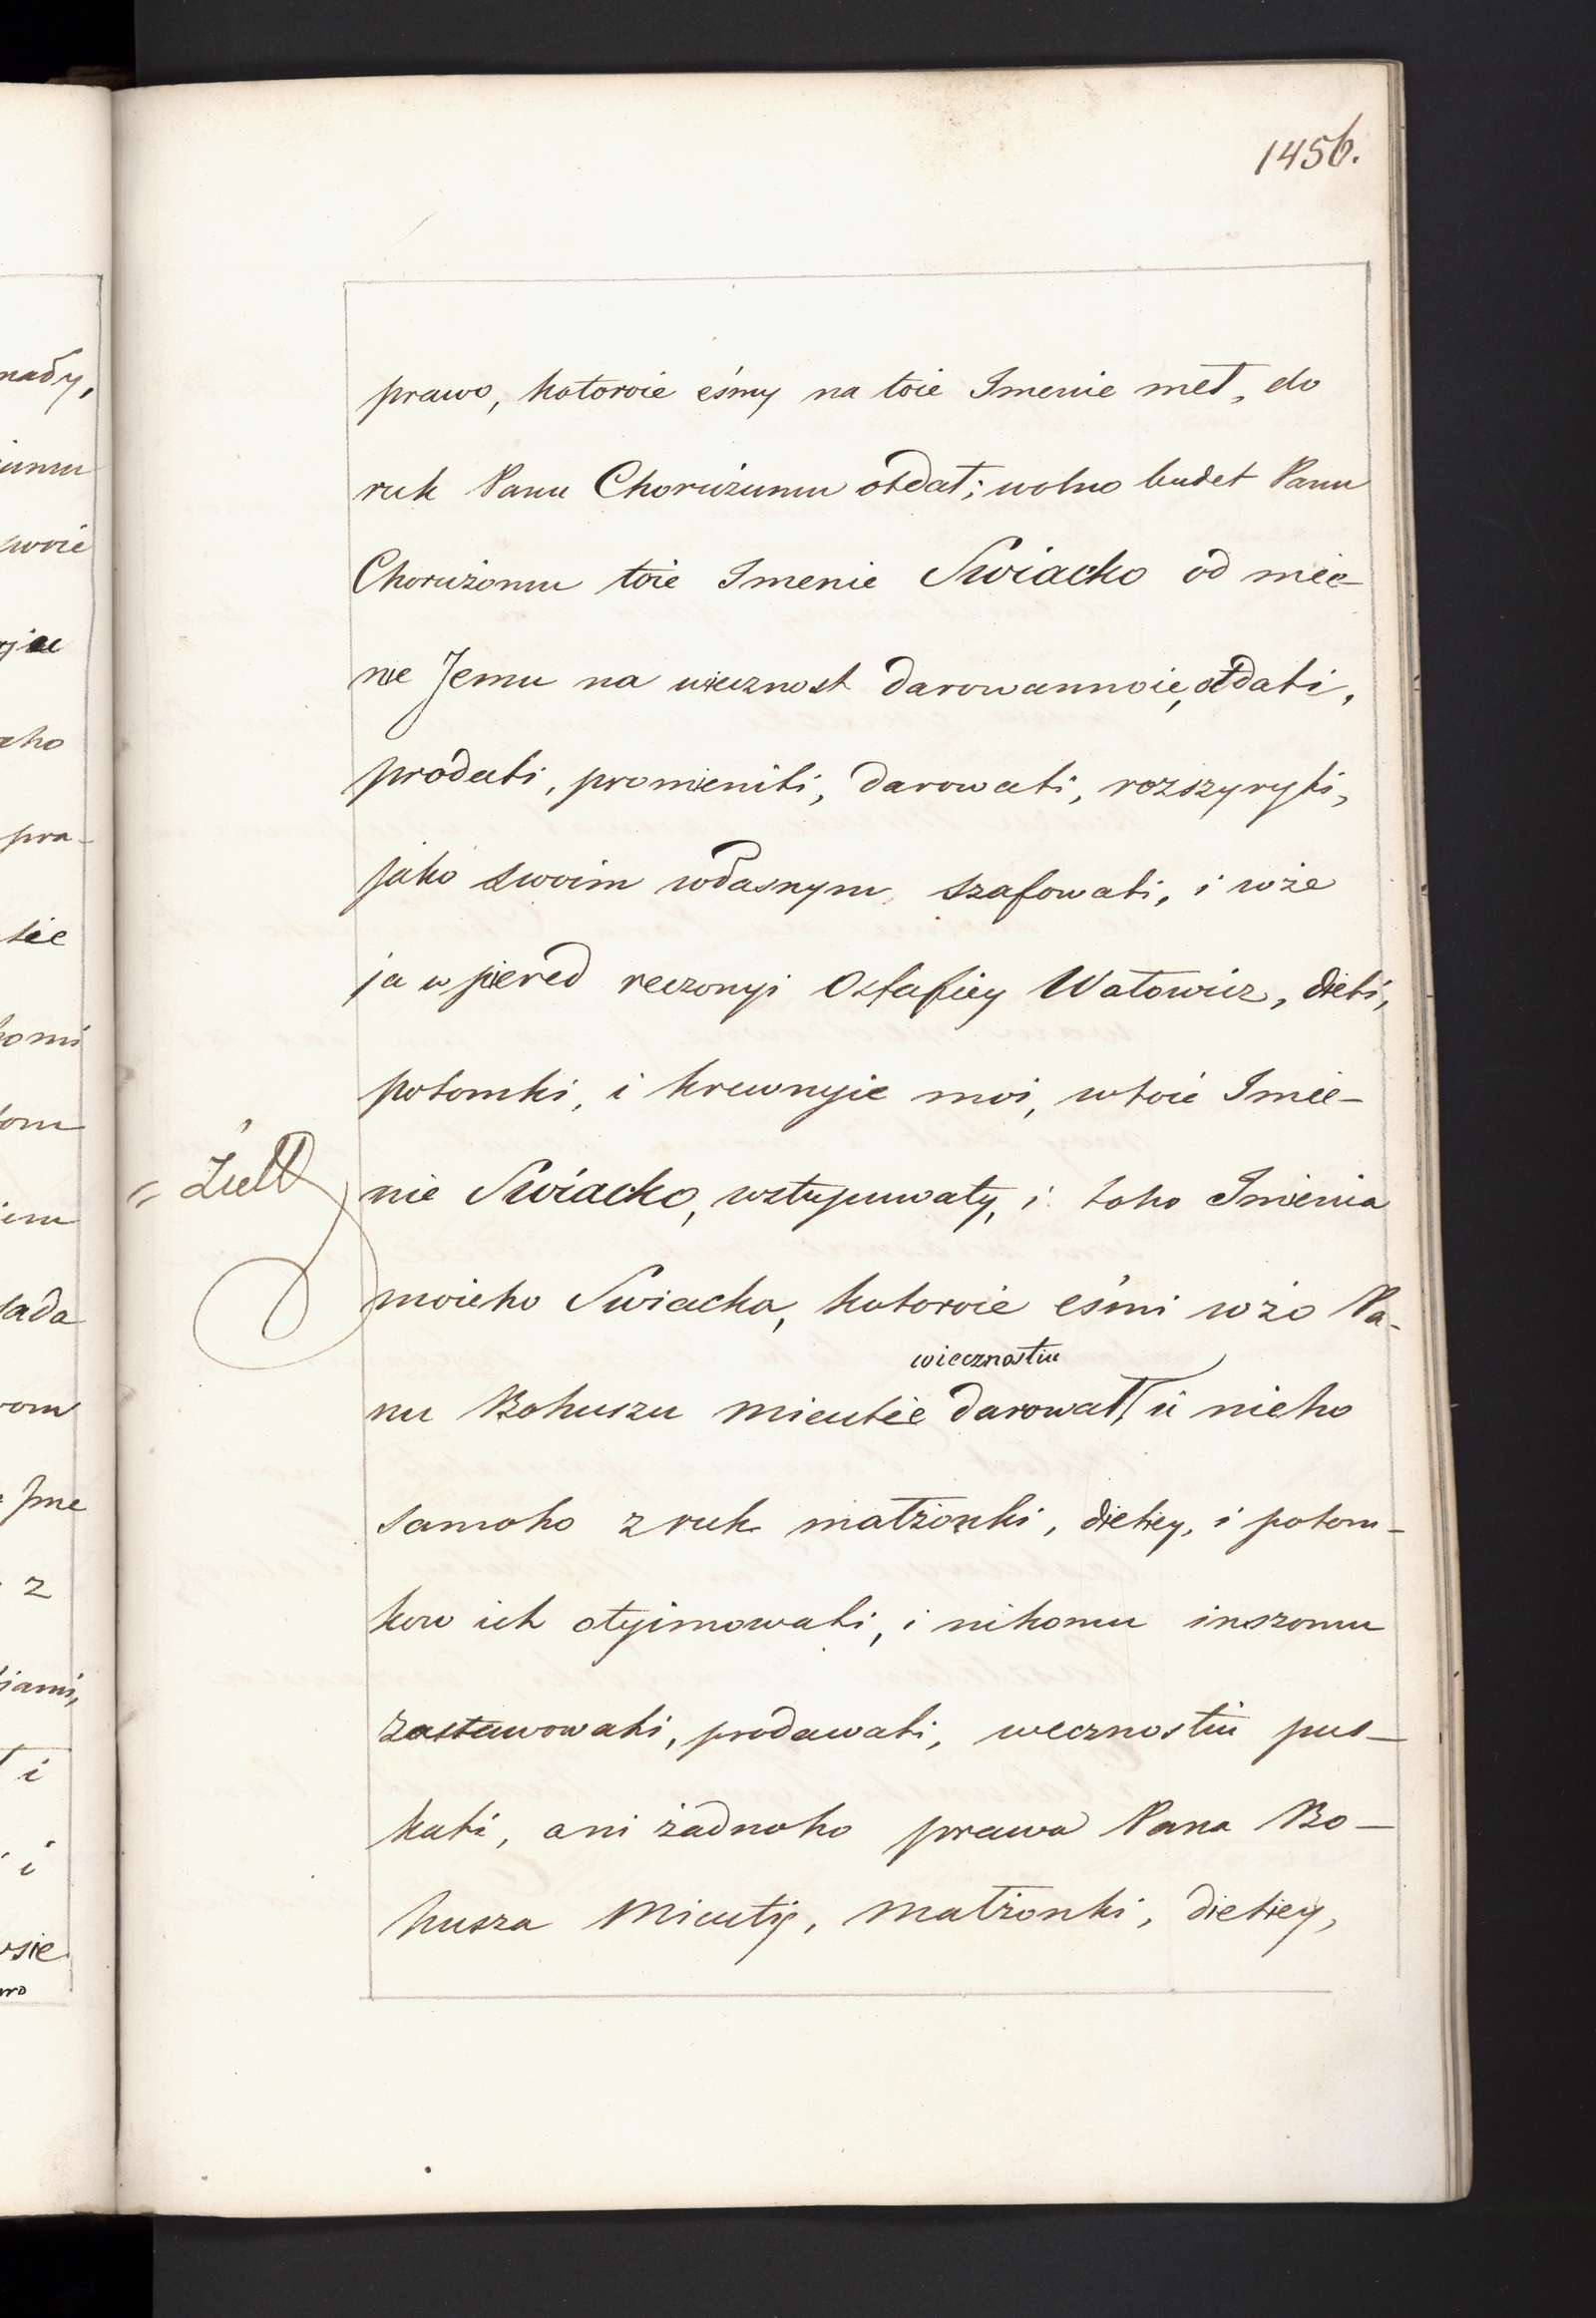 1456.
prawo, kotoroie eśmy na toie Imenie meł, do
ruk Panu Chorużumu otdał; wolno budet Panu
Chorużomu toie Imenie Swiacko od mee-
ne Jemu na wiecznost darowannoie, otdati,
prodati, promieniti, darowati, rozszyryti,
jako swoim własnym szafowati, i wże
ja w pered reczonyi Ostafiey Wałowicz, dieti,
potomki, i krewnyie moi, wtoie Imie-
nie Swiacko, wstupuwaty, i toho Imienia
moieho Swiacka, kotoroie eśmi wżo Pa-
wiecznostiu
nu Bohuszu Micutie darowałł ú nieho
samoho z ruk małżonki, dietiey, i potom-
kow ich otyimowati, i nikomu inszomu
zastawowati, prodawati, wecznostiu pus-
kati, ani żadnoho prawa Pana Bo-
husza Micuty, Małżonki, dietiey,
nady,
swoie
aho
pra-
tie
tom
sada
Jme
z
i
i
wsie